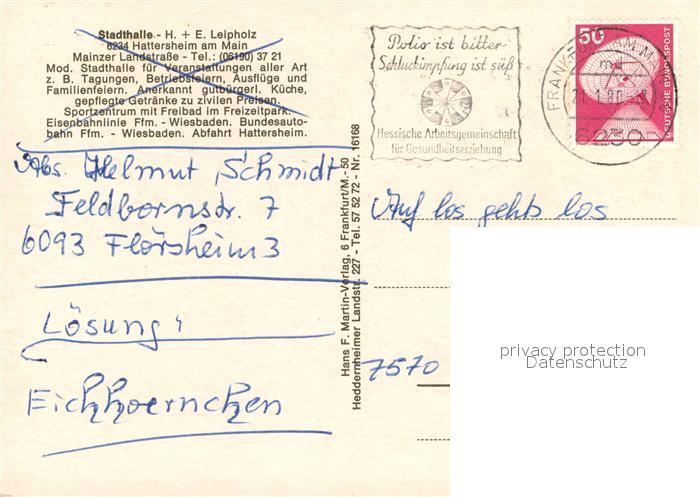 Stadthalle - H. + E. Leipholz
6234 Hattersheim am Main
Mainzer Landstraße - Tel.: (06190) 37 21
Mod. Stadthalle für Veranstaltungen aller Art
z. B. Tagungen, Betriebsfeiern, Ausflüge und
Familienfeiern. Anerkannt gutbürgerl. Küche,
gepflegte Getränke zu zivilen Preisen.
Sportzentrum mit Freibad im Freizeitpark.
Eisenbahnlinie Ffm. - Wiesbaden Bundesauto-
bahn Ffm. - Wiesbaden. Abfahrt Hattersheim.
Abs. Helmut Schmidt
Feldbornstr. 7
6093 Flörsheim 3
Lösung:
Eichhoernchen
Hans F. Martin-Verlag, 6 Frankfurt/M.-50
Heddernheimer Landstr. 227 - Tel. 57 52 72 - Nr. 16168
Polio ist bitter-
Schluckimpfung ist süß
Hessische Arbeitsgemeinschaft
für Gesundheitserziehung
50
DEUTSCHE BUNDESPOST
FRANKFURT AM MAIN
6230
Auf los gehts los
7570
privacy protection
Datenschutz